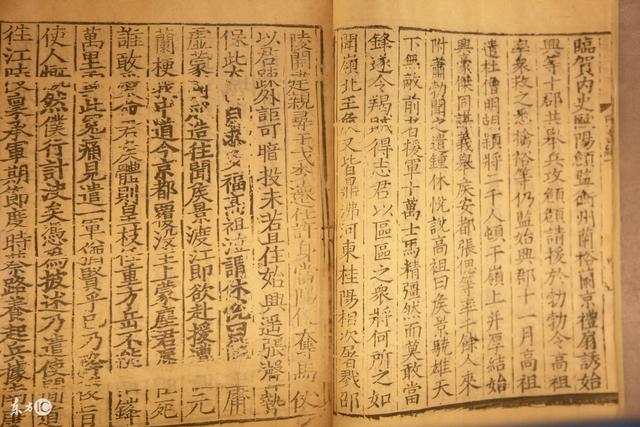 臨賀内史歐陽頠監衡州蘭裕蘭京禮扇誘始
興等十郡共舉兵攻頠頠請援於勃勃令高祖
率衆救之悉擒裕等仍監始興郡十一月高祖
遣杜僧明胡穎將二千人頓于嶺上并厚結始
興豪傑同謀義舉侯安都張偲等率千餘人來
附蕭勃聞之遣鍾休悅說高祖曰侯景驍雄天
下無敵前者援軍十萬士馬精彊然而莫敢當
鋒遂令羯賊得志君以區區之衆將何所之如
聞嶺北王侯又皆鼎沸河東桂陽相次屠戮邵
陵開建親尋干戈李遷仕許身當陽便奪馬仗
以君疎外詎可暗投未若且住始興遥張聲勢
保此太自求多福高祖泣謂休悅曰庸
虛蒙國成造往聞侯景渡江即欲赴援遭元
蘭梗我中道今京都覆沒主上蒙塵君辱死
誰敢愛命君侯體則皇枝任重方岳不能鋒
萬里雪此冤痛見遣一軍猶賢乎已乃旨
使人慨然僕行計決矣憑爲披述乃遣使間道
往江陵稟承軍期節度時蔡路養起兵據南
东方IC